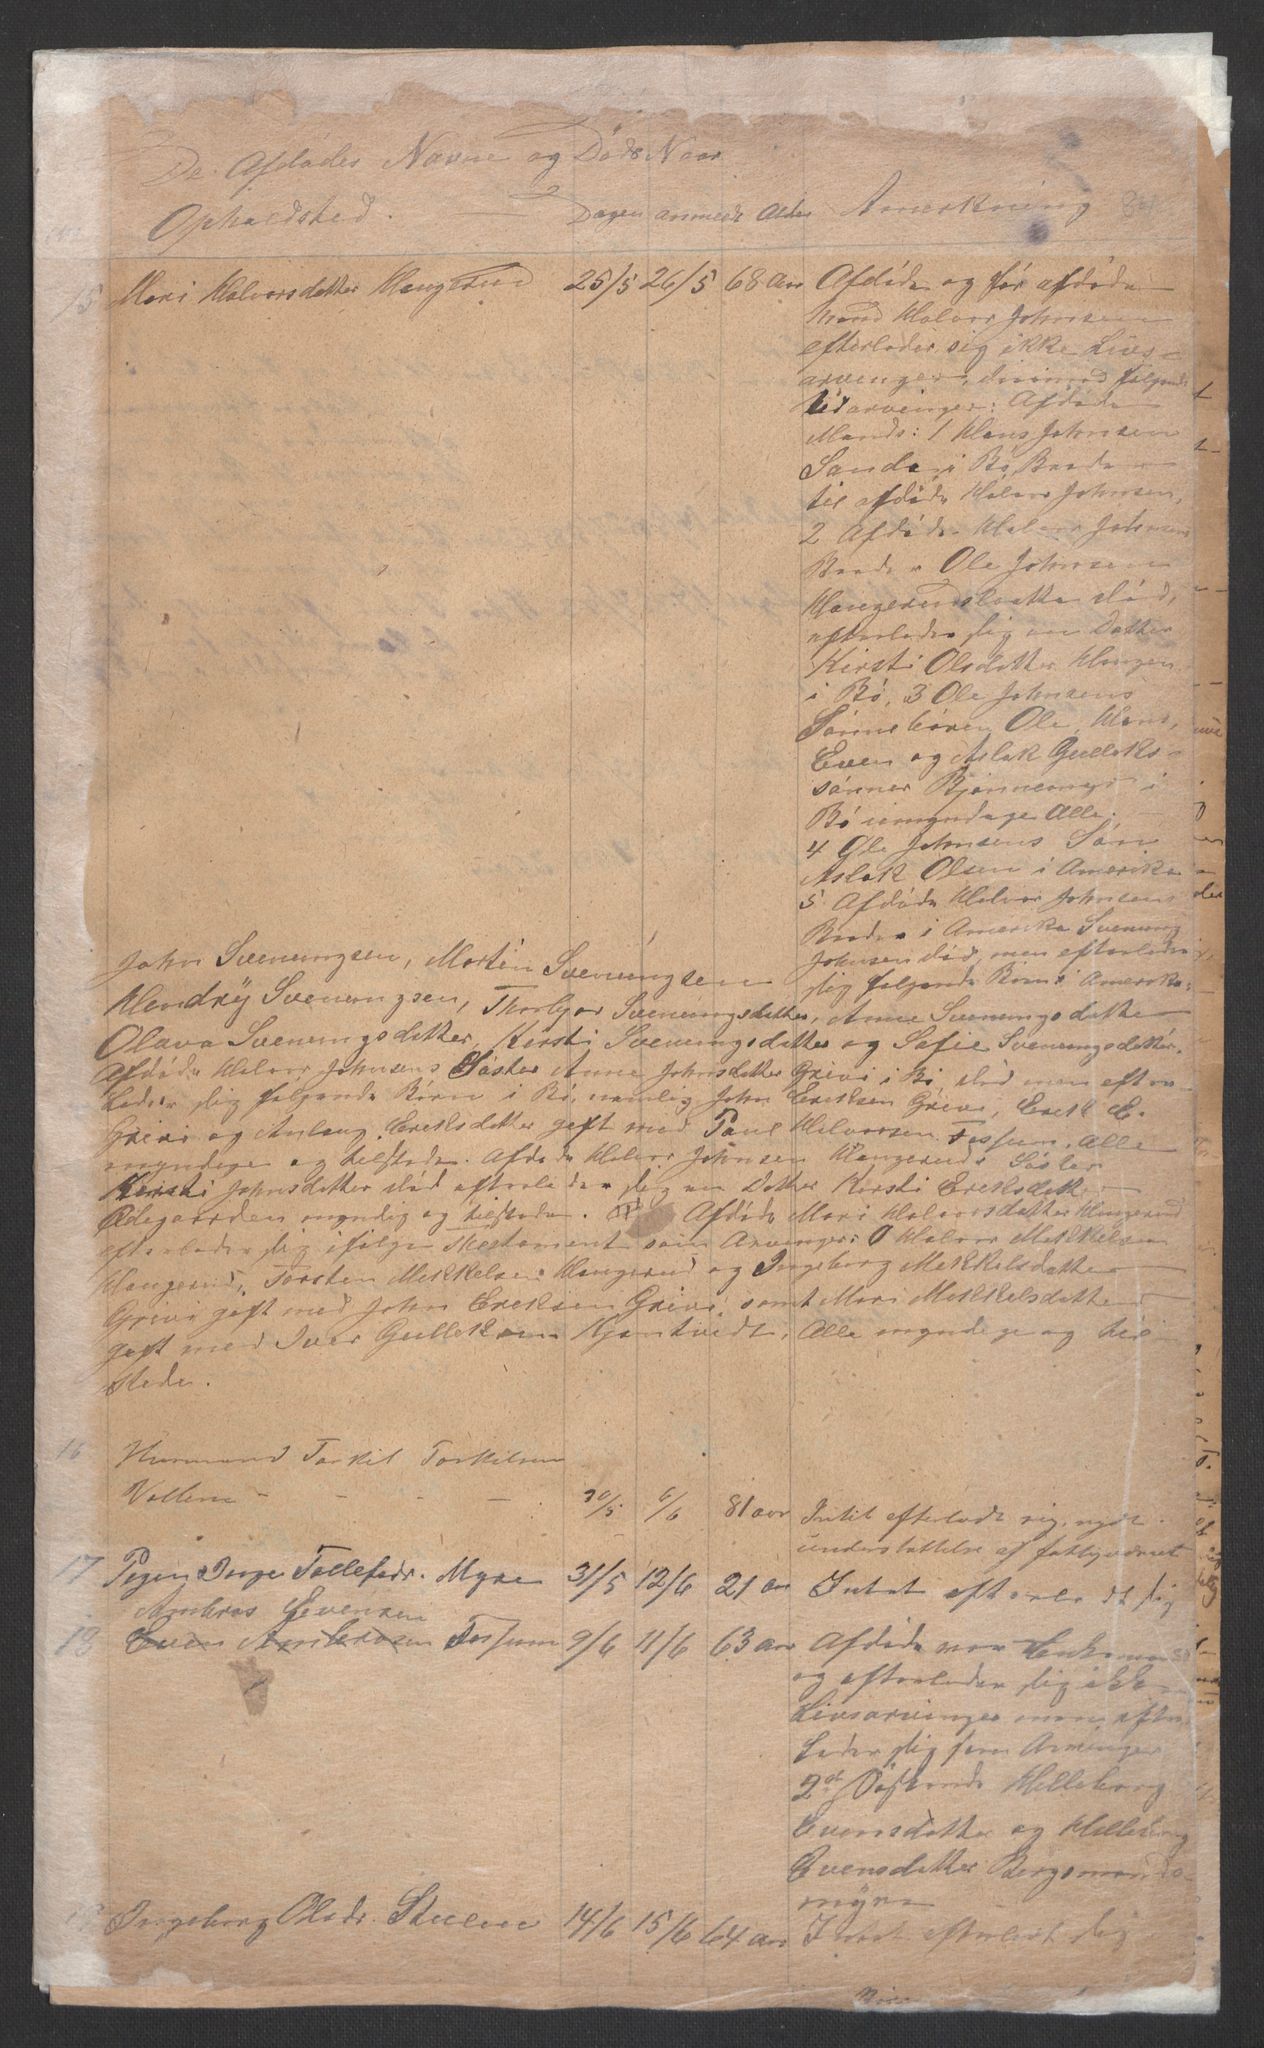 De Afdødes Navne og Døds Naar
Opholdsted. Dagen anmeldt Alder Anmerkning
15 Mari Halvorsdatter Haugerud 25/5 26/5 68 aar Afdøde og før afdøde
Mand Halvor Johnsen
efterlader sig ikke Livs-
arvenger, derimod følgende
Udarvinger: Afdøde
Mands: 1 Hans Johnsen
Sanda i Bø, Broder
til afdøde Halvor Johnsen,
2 Afdøde Halvor Johnsens
Broder Ole Johnsen
Haugerudsbakka død,
efterlader sig en Datter
Kirsti Olsdatter Haugen
i Bø, 3 Ole Johnsens
Sønnebøren Ole, Hans,
Even og Aslak Gulleks-
sønner i
Bø umyndige Alle.
4 Ole Johnsens Søn
Aslak Olsen i Amerika
5 Afdøde Halvor Johnsens
Broder i Amerika Svenung
Johnsen død, men efterlader
sig følgende Børn i Amerika:
John Svenungsen, Morten Svenungsen
Hendrÿ Svenungsen, Thorbjør Svenungsdatter, Anne Svenungsdatter
Olava Svenungsdatter, Kirsti Svenungsdatter og Sofie Svenungsdatter.
Afdøde Halvor Johnsens Søster Anne Johnsdatter Grivi i Bø, død men efter-
lader sig følgende Børn i Bø, namlig John Eriksen Grivi, Erik E.
Grivi og Aslaug Eriksdatter gift med Paul Halvorsen Fossum. Alle
myndige og tilstede. Afdøde Halvor Johnsen Haugeruds Søster
Kirsti Johnsdatter død efterlader sig en Datter Kirsti Eriksdatter
Ødegaarden myndig og tilstede. Afdøde Mari Halvorsdatter Haugerud
efterlader sig ifølge Testament som Arvinger: Halvor Mikkelsen
Haugerud, Torsten Mikkelsen Haugerud og Ingeborg Mikkelsdatter
Grivi gift med John Eriksen Grivi, samt Mari Mikkelsdatter
gift med Iver Gulleksen Kjøntvedt, Alle myndige og til
stede.
16 Huusmand Torkil Torkilsen
Vollene - - - - 30/5 6/6 81 aar Intet efterladt sig, nydt
understøttelse af fattigvæsnet
17 Pigen Tollefsdr. Myre 31/5 12/6 21 aar Intet efterladt sig
Ambros Evensen
18 Even Ambrosen Fossum 9/6 11/6 63 aar Afdøde var Enkemand
og efterlader sig ikke
Livsarvinger men efter
lader sig som Arvinger
2de Søskende Helleborg
Evensdatter og Helleborg
Evensdatter Bergsmands
myren
19 Ingeborg Olsdr. 14/6 15/6 64 aar Intet efterladt sig